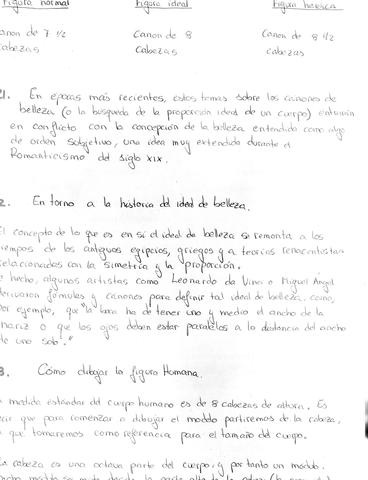 Figura normal Figura ideal Figura heroica
canon de 7 1/2 Canon de 8 Canon de 8 1/2
cabezas Cabezas cabezas
1. En epocas más recientes, estos temas sobre los cánones de
belleza (o la busqueda de la proporción ideal de un cuerpo) entrarían
en conflicto con la concepción de la belleza entendida como algo
de orden subjetivo, una idea muy extendida durante el
Romanticismo del siglo XIX.
2. En torno a la historia del ideal de belleza.
El concepto de lo que es en sí el ideal de belleza se remonta a los
tiempos de los antiguos egipcios, griegos y a teorías renacentistas
relacionadas con la simetría y la proporción.
hecho, algunos artistas como Leonardo da Vinci o Miguel Angel
derivaron fórmulas y canones para definir tal ideal de belleza, como,
por ejemplo, que "la boca ha de tener uno y medio el ancho de la
nariz o que los ojos deben estar paralelos a la distancia del ancho
de uno solo."
3. Cómo dibujar la figura Humana.
medida estándar del cuerpo humano es de 8 cabezas de altura. Es
decir que para comenzar a dibujar el modelo partiremos de la cabeza,
que tomaremos como referencia para el tamaño del cuerpo.
La cabeza es una octava parte del cuerpo, y por tanto un modulo.